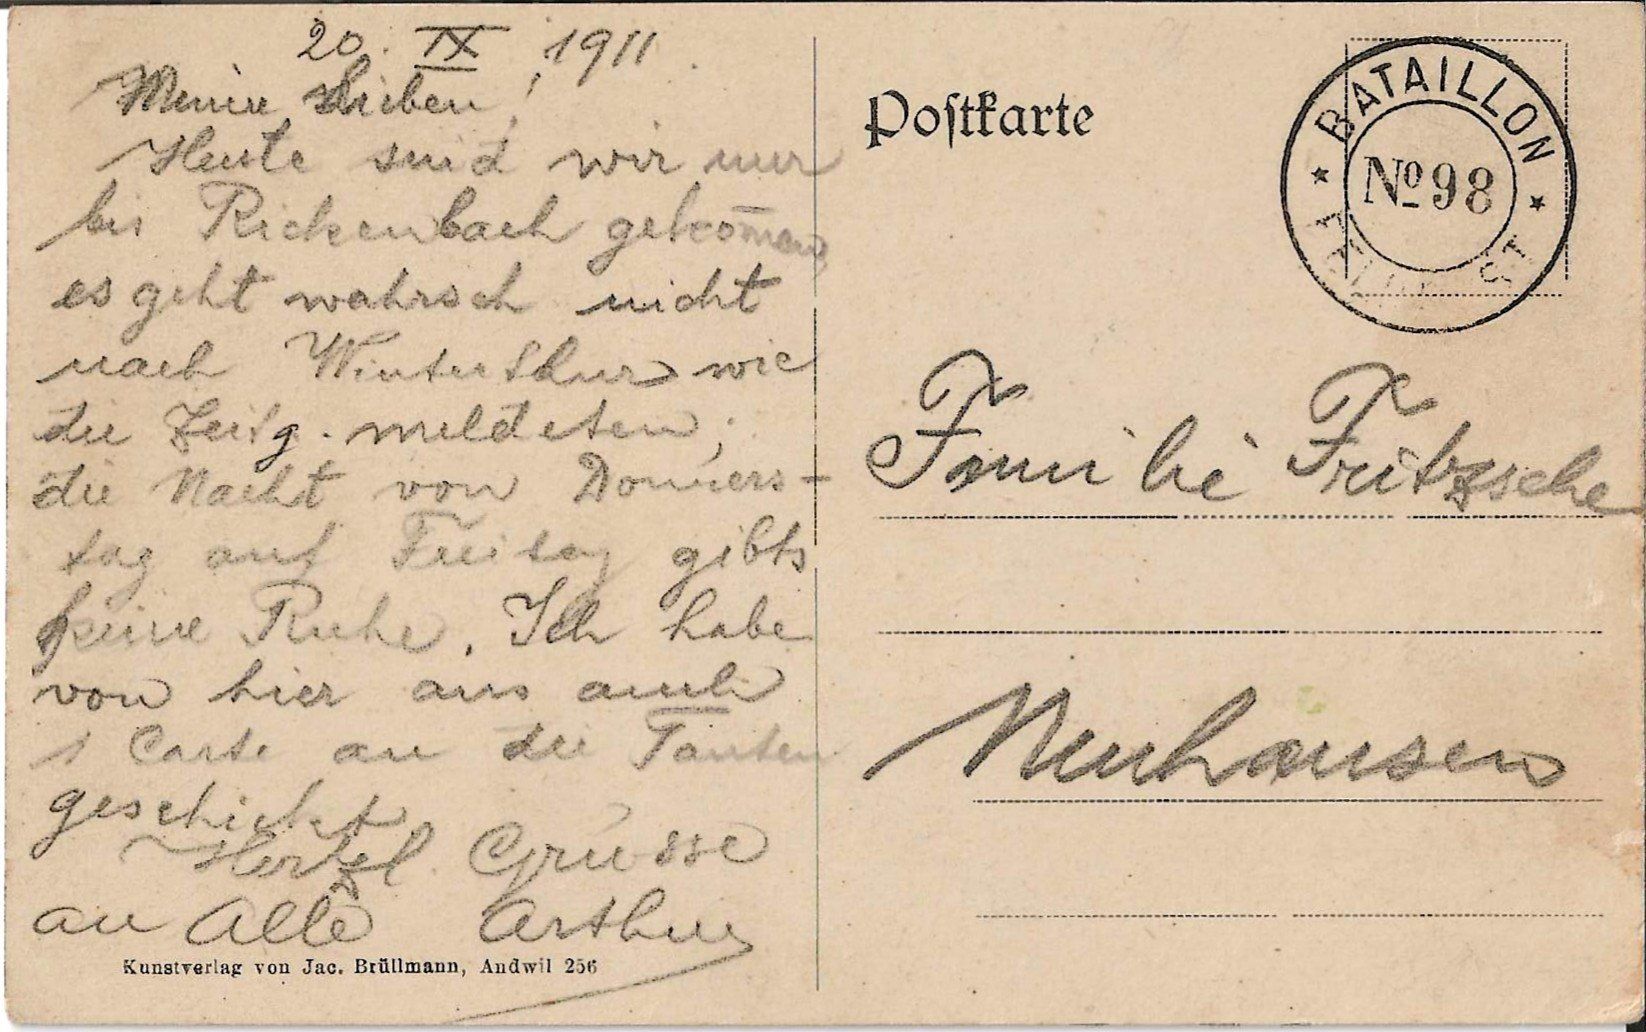 20. IX. 1911.
Meine Lieben!
Heute sind wir nur
bis Rickenbach gekom̅en,
es geht wahrsch nicht
nach Winterthur wie
die Zeitg. meldeten;
die Nacht von Donners-
tag auf Freitag gibts
keine Ruhe. Ich habe
von hier aus auch
1 Carte an die Tanten
geschickt
Herzl. Grüsse
an Alle Arthur
Kunstverlag von Jac. Brüllmann, Andwil 256
Postkarte
BATAILLON
No 98
Familie Fritzsche
Neuhausen